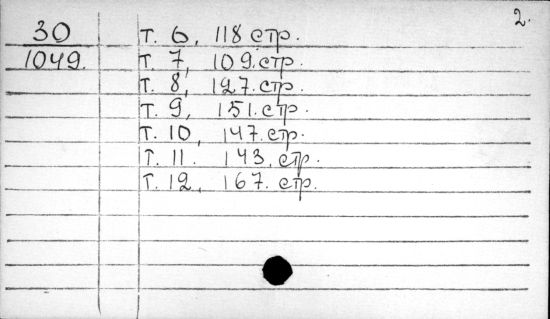 2.
30
1049.
т. 6, 118 стр.
т. 7, 109. стр.
т. 8, 127. стр.
т. 9, 151. стр.
т. 10, 147. стр.
т. 11. 143. стр.
т. 12, 167. стр.